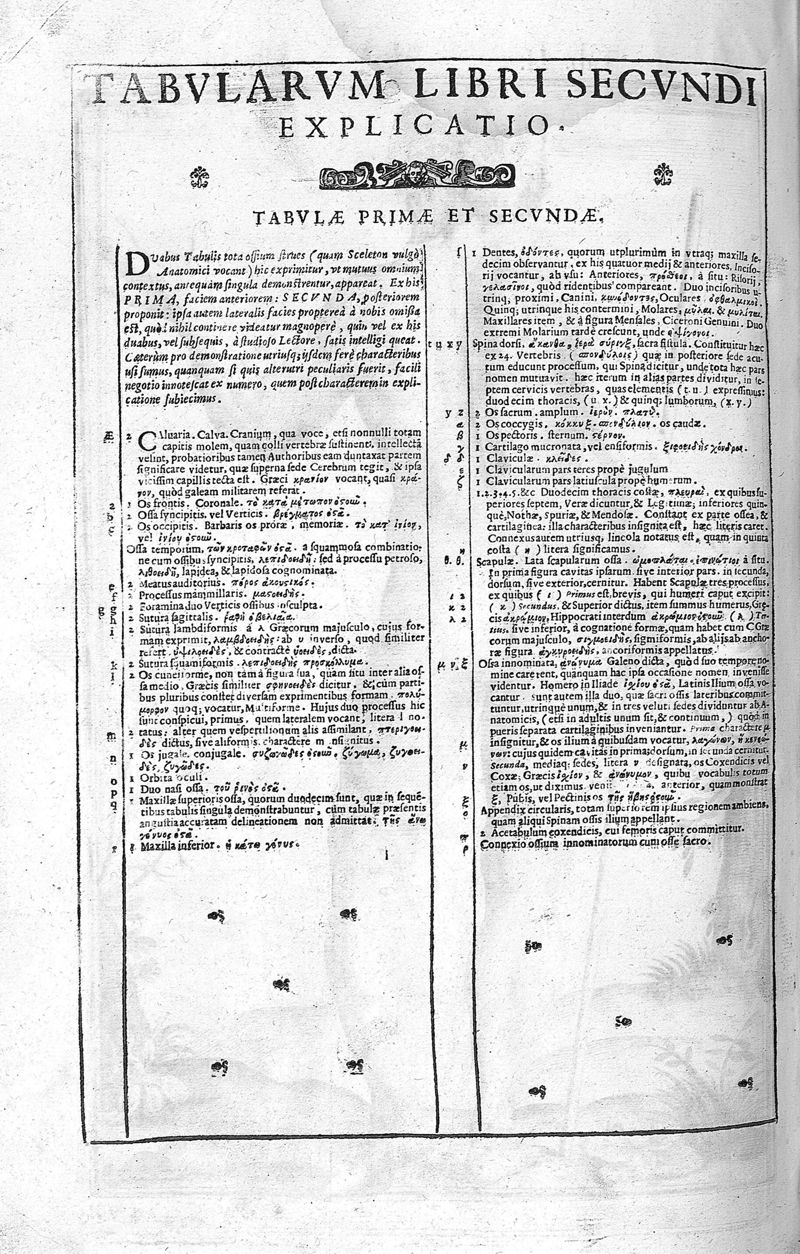 TABVLARVM LIBRI SECVNDI
EXPLICATIO.
TABVLÆ PRIMÆ ET SECVNDÆ.
DVabus Tabulis tota ossium strues (quam Sceleton vulgò
Anatomici vocant) hic exprimitur, vt mutuus omnium
contextus, antequam singula demonstrentur, appareat. Ex his
PRIMA, faciem anteriorem: SECVNDA, posteriorem
proponit: ipsa autem lateralis facies proptereà à nobis omissa
est, quòd nihil continere videatur magnoperè, quin vel ex his
duabus, vel subsequis, à studioso Lectore, satis intelligi queat.
Cæterùm pro demonstratione utriusq; ijsdem ferè characteribus
usi sumus, quanquam si quis alterutri peculiaris fuerit, facili
negotio innotescat ex numero, quem post characterem in expli-
catione subiecimus.
Æ 2 CAluaria. Calva. Cranium, qua voce, etsi nonnulli totam
capitis molem, quam colli vertebræ sustinent, intellectã
velint, probatioribus tamen Authoribus eam duntaxat partem
significare videtur, quæ superna sede Cerebrum tegit, & ipsa
vicissim capillis tecta est. Græci κρανίον vocant, quasi κρά-
νον, quòd galeam militarem referat.
a 1 Os frontis. Coronale. τὸ κατὰ μέτωπον ὀστοῦν.
b 2 Ossa syncipitis. vel Verticis. βρέγματος ὀστᾶ.
c 2 Os occipitis. Barbaris os proræ, memoriæ. τὸ κατ' ἰνίον,
vel ἰνίου ὀστοῦν.
Ossa temporum. τῶν κροτάφων ὀστᾶ. à squammosa combinatio-
ne cum ossibus syncipitis, λεπιδοειδῆ, sed à processu petroso,
λιθοειδῆ, lapidea, & lapidosa cognominata.
e 2 Meatus auditorius. πόρος ἀκουστικός.
f 2 Processus mammillaris. μαστοειδής.
g 2 Foramina duo Verticis ossibus insculpta.
g h 2 Sutura sagittalis. ῥαφὴ ὀβελιαία.
i 2 Sutura lambdiformis à Λ Græcorum majusculo, cujus for-
mam exprimit, λαμβδοειδής: ab υ inverso, quod similiter
refert ὑψιλοειδής, & contractè ὑοειδής, dicta.
k 2 Sutura squamiformis. λεπιδοειδὴς προσκόλλημα.
l 2 Os cuneiforme, non tàm à figura sua, quàm situ inter alia os-
sa medio. Græcis similiter σφηνοειδὲς dicitur. & cùm parti-
bus pluribus constet diversam exprimentibus formam πολύ-
μορφον quoq; vocatur, Multiforme. Hujus duo processus hic
sunt conspicui, primus, quem lateralem vocant, litera l no-
tatus: alter quem vespertilionum alis assimilant, πτερυγοει-
m 2 δὲς dictus, sive aliformis, charactere m insignitus.
n 1 Os jugale. conjugale. συζυγῶδες ὀστοῦν. ζύγωμα, ζυγοει-
δὲς, ζυγῶδες.
o 1 Orbita oculi.
p 1 Duo nasi ossa. τοῦ ῥινὸς ὀστᾶ.
q 1 Maxillæ superioris ossa, quorum duodecim sunt, quæ in seque-
tibus tabulis singula demonstrabuntur, cùm tabulæ præsentis
angustia accuratam delineationem non admittat. τῆς ἄνω
γένυος ὀστᾶ.
r 1 Maxilla inferior. ἡ κάτω γένυς.
ſ 1 Dentes, ὀδόντες, quorum utplurimùm in vtraq; maxilla se-
decim observantur. ex his quatuor medij & anteriores, Inciso-
rij vocantur, ab vsu: Anteriores, πρόσθιοι, à situ: Risorij,
γελασῖνοι, quòd ridentibus compareant. Duo incisoribus u-
trinq; proximi, Canini. κυνόδοντες, Oculares ὀφθαλμικοί.
Quinq; utrinque his contermini, Molares, μύλαι, & μυλῖται.
Maxillares item, & à figura Mensales, Ciceroni Genuini. Duo
extremi Molarium tardè crescunt, unde ὀψίγονοι.
t u x y Spina dorsi. ἄκανθα, ἱερὰ σύριγξ, sacra fistula. Constituitur hæc
ex 24. Vertebris (σπονδύλοις) quæ in posteriore sede acu-
tum educunt processum, qui Spina dicitur, unde tota hæc pars
nomen mutuavit. hæc iterum in alias partes dividitur, in se-
ptem cervicis vertebras, quas elementis (t. u.) expressimus:
duodecim thoracis, (u. x.) & quinq; lumborum, (x. y.)
y z 2 Os sacrum. amplum. ἱερὸν. πλατύ.
α 2 Os coccygis. κόκκυξ. σπονδύλιον. os caudæ.
β 1 Os pectoris. sternum. στέρνον.
γ 1 Cartilago mucronata, vel ensiformis. ξιφοειδὴς χόνδρος.
δ δ 1 Claviculæ. κλεῖδες.
ε 1 Clavicularum pars teres propè jugulum
ζ 1 Clavicularum pars latiuscula propè humerum.
1.2.3.4.5.&c Duodecim thoracis costæ, πλευραί, ex quibus su-
periores septem, Veræ dicuntur, & Legitimæ; inferiores quin-
què, Nothæ, Spuriæ, & Mendosæ. Constant ex parte ossea, &
cartilaginea: illa characteribus insignita est, hæc literis caret.
Connexus autem utriusq; lineola notatus est, quam in quinta
η costa (η) litera significamus.
θ. θ. Scapulæ. Lata scapularum ossa. ὠμοπλάται. ἐπινώτιοι à situ.
In prima figura cavitas ipsarum. sive interior pars. in secunda,
dorsum, sive exterior, cernitur. Habent Scapulæ tres processus,
ι 2 ex quibus (ι) Primus est, brevis, qui humeri caput excipit:
κ 2 (κ) Secundus, & Superior dictus, item summus humerus, Græ-
λ 2 cis ἀκρώμιον, Hippocrati interdum ἀκρώμιον ὀστοῦν. (λ) Ter-
tius. sive inferior, à cognatione formæ, quam habet cum C Græ-
corum majusculo, σιγμοειδὴς, sigmiformis, ab alijs ab ancho-
ræ figura ἀγκυροειδὴς, ancoriformis appellatus.
μ, ν, ξ Ossa innominata, ἀνώνυμα Galeno dicta, quòd suo tempore no-
mine carerent, quanquam hac ipsa occasione nomen invenisse
videntur. Homero in Iliade ἰσχίου ὀστᾶ, Latinis Ilium ossa, vo-
cantur. sunt autem illa duo, quæ sacri ossis lateribus commit-
tuntur, utrinque unum, & in tres veluti sedes dividuntur ab A-
natomicis, (etsi in adultis unum sit, & continuum,) quòd in
pueris separata cartilaginibus inveniantur. Prima charactere μ
μ insignitur, & os ilium à quibusdam vocatur, λαγόνων, ἢ κενεώ-
νων: cujus quidem cavitas in prima, dorsum, in secunda cernitur.
ν Secunda, mediaq; sedes, litera ν designata, os Coxendicis vel
Coxæ, Græcis ἰσχίον, & ἀνώνυμον, quibus vocabulis totum
etiam os, ut diximus, anterior, quam monstrat
ξ, Pubis, vel Pectinis os τῆς ἥβης ὀστοῦν.
ο Appendix circularis, totam superiorem ipsius regionem ambiens,
quam aliqui Spinam ossis ilium appellant.
π 2 Acetabulum coxendicis, cui femoris caput committitur.
ρ Connexio ossium innominatorum cum osse sacro.